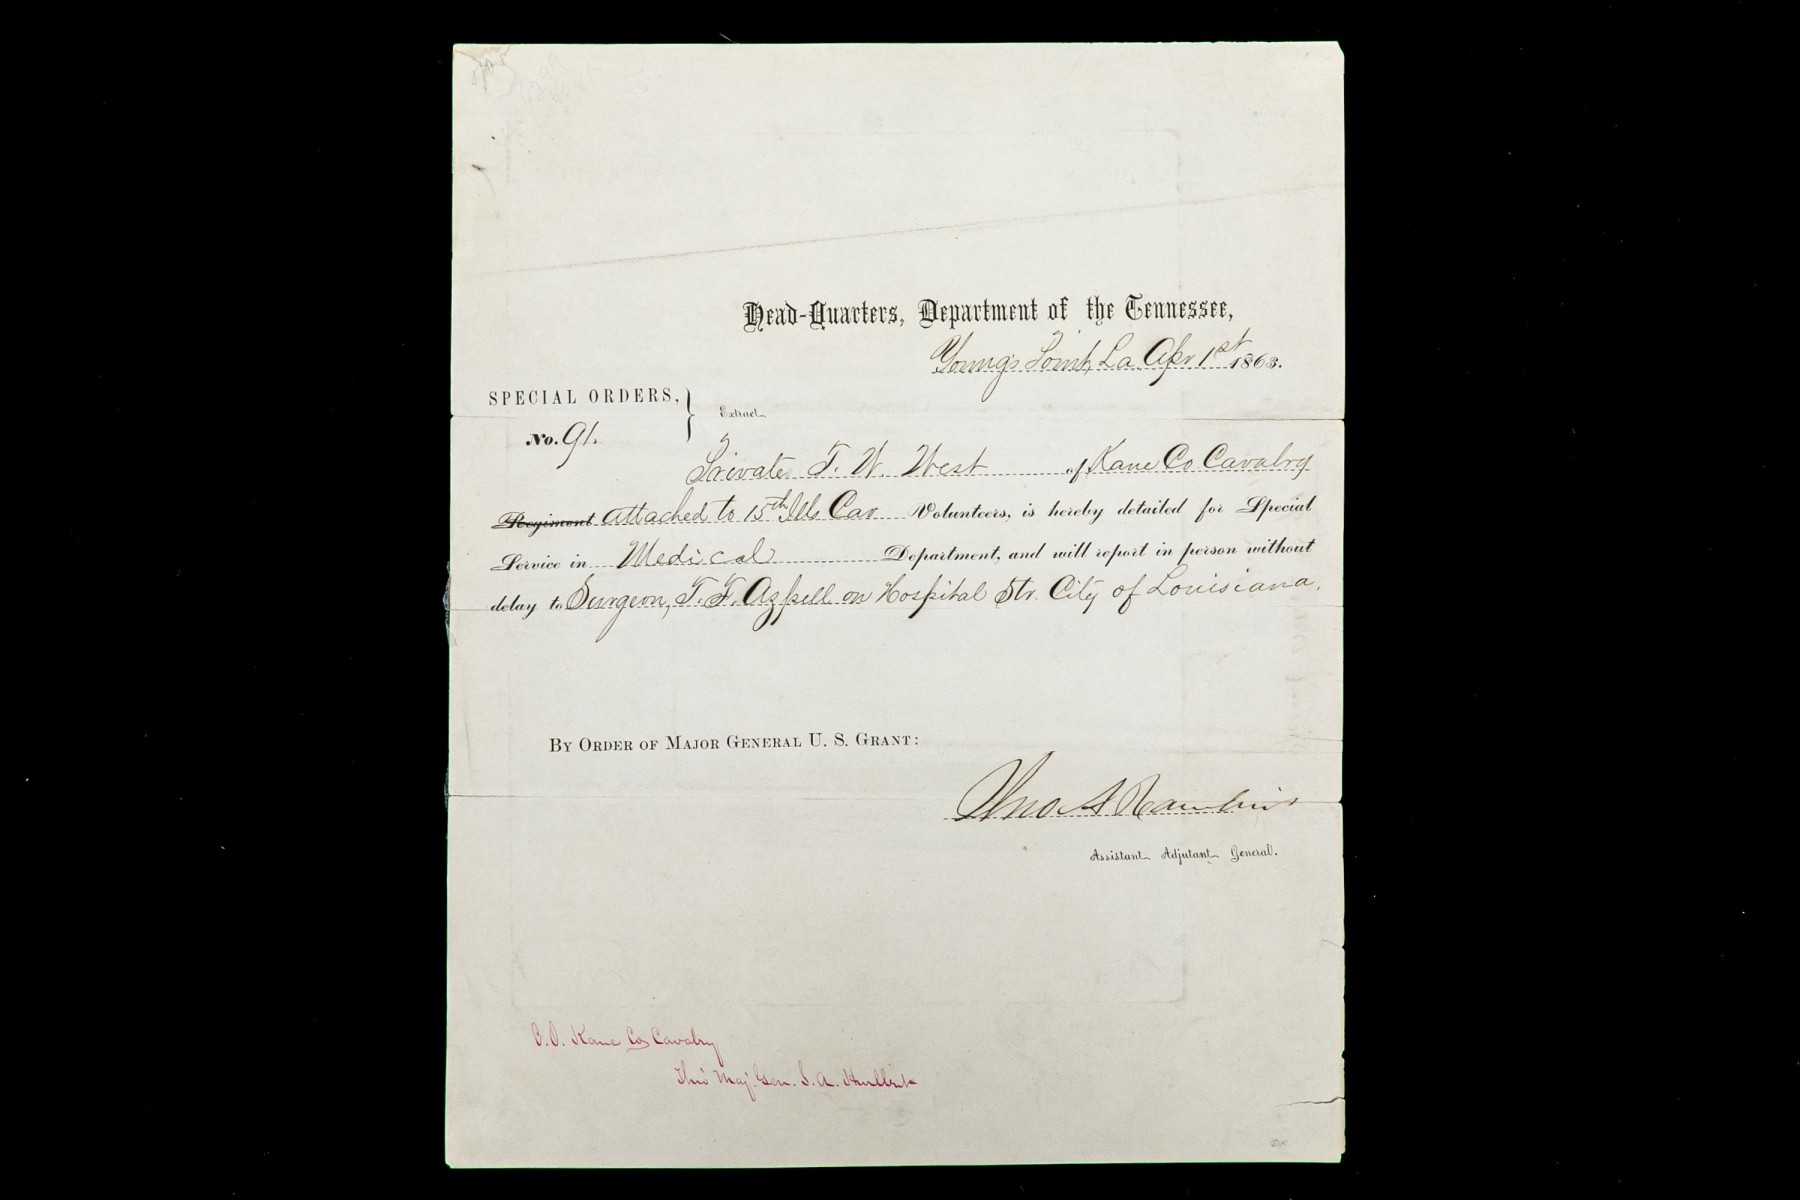 Head-Quarters, Department of the Tennessee,
Young's Point, La. Apr 1st 1863.
SPECIAL ORDERS,
No. 91.
Extract
Private T. W. West of Kane Co Cavalry
Regiment Attached to 15th Ills Cav Volunteers, is hereby detailed for Special
Service in Medical Department, and will report in person without
delay to Surgeon, T. F. Azpell on Hospital Str. City of Louisiana.
BY ORDER OF MAJOR GENERAL U. S. GRANT:
Jno A Rawlins
Assistant Adjutant General.
C. O. Kane Co Cavalry
Thro' Maj. Gen. S. A. Hurlbut